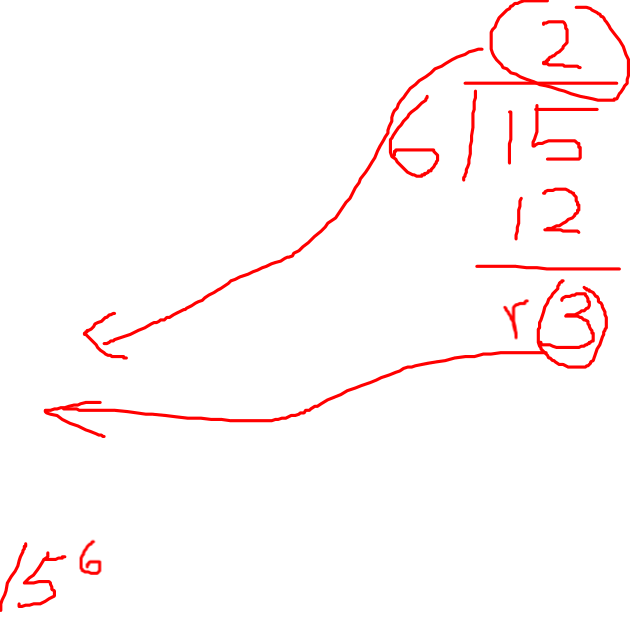 2
6 15
12
r 3
15⁶